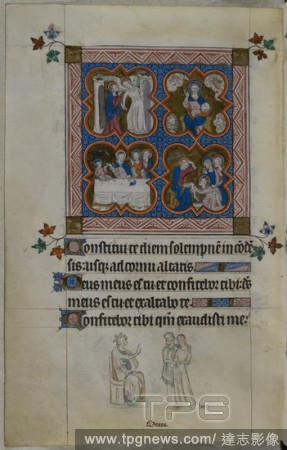 Constitui te diem solempnē in cōdē
sis: usq; ad cornu altaris.
Deus meus es tu et confitebor tibi: ds
meus es tu et exaltabo te.
Confitebor tibi qm̄ exaudisti me:
TPG
www.tpgnews.com/達志影像